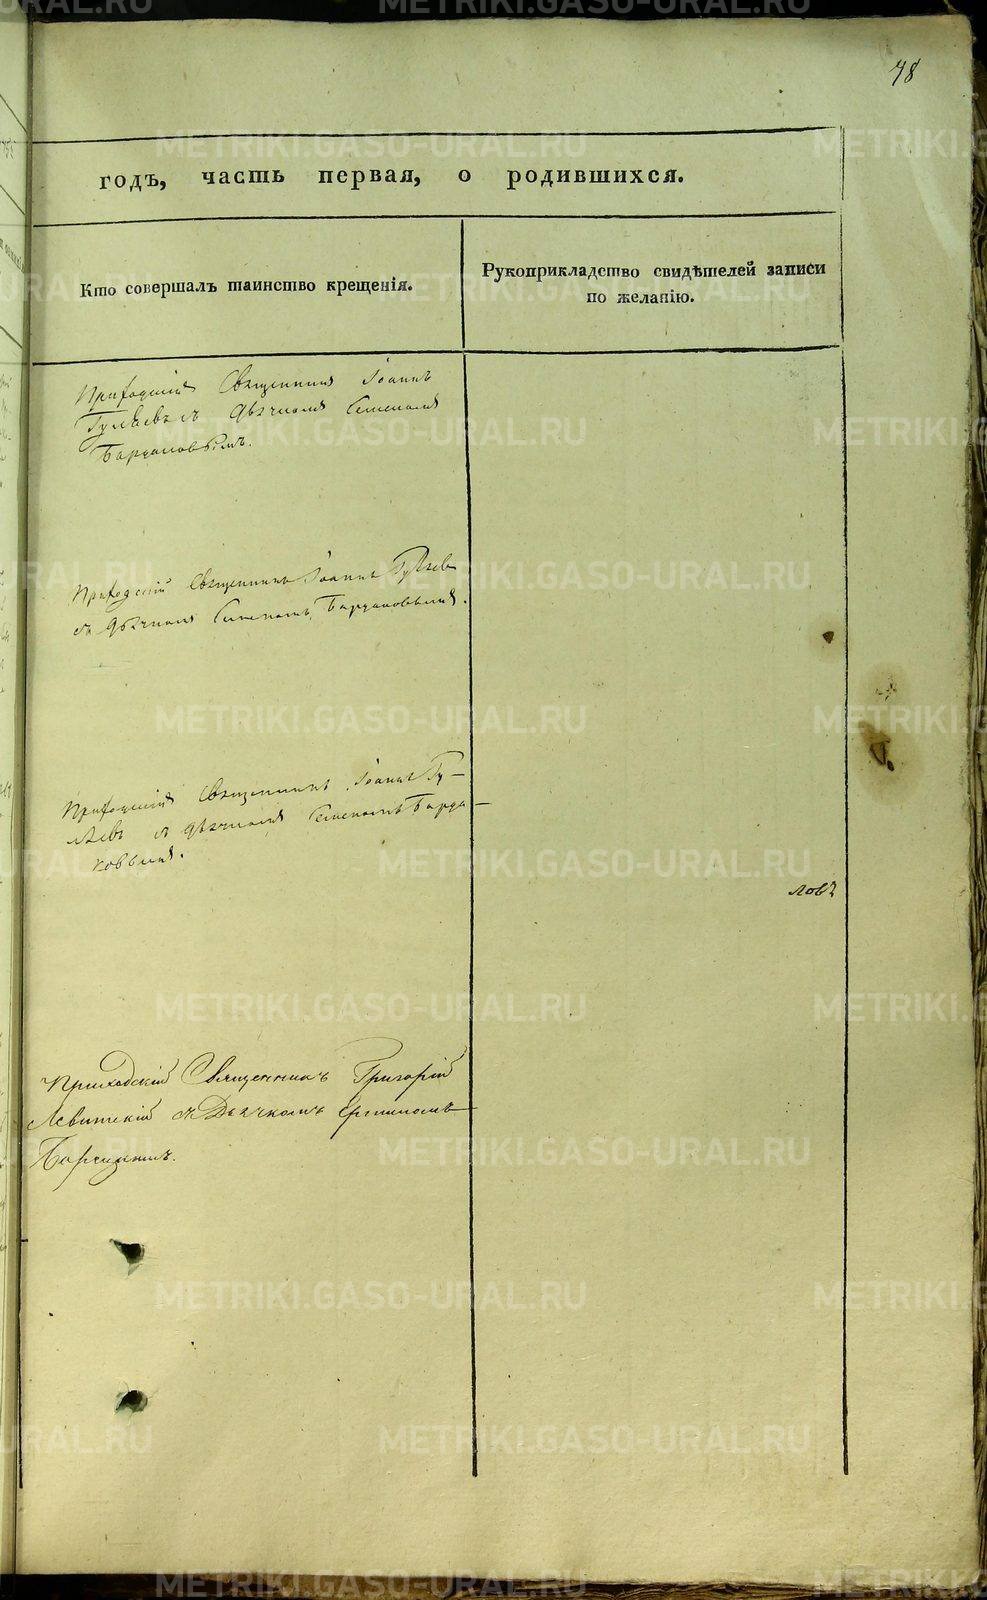 78
годъ, часть первая, о родившихся.
Кто совершалъ таинство крещенія.
Рукоприкладство свидѣтелей записи
по желанію.
Приходскій Священникъ Іоаннъ
Гуляевъ съ дьячкомъ
Приходскій Священникъ Іоаннъ Гуляев
съ дьячкомъ
Приходскій Священникъ Іоаннъ Гу-
ляевъ съ дьячкомъ
ковымъ.
ловъ
Приходскій Священникъ Григорій
Левитскій съ Дьячкомъ
METRIKI.GASO-URAL.RU